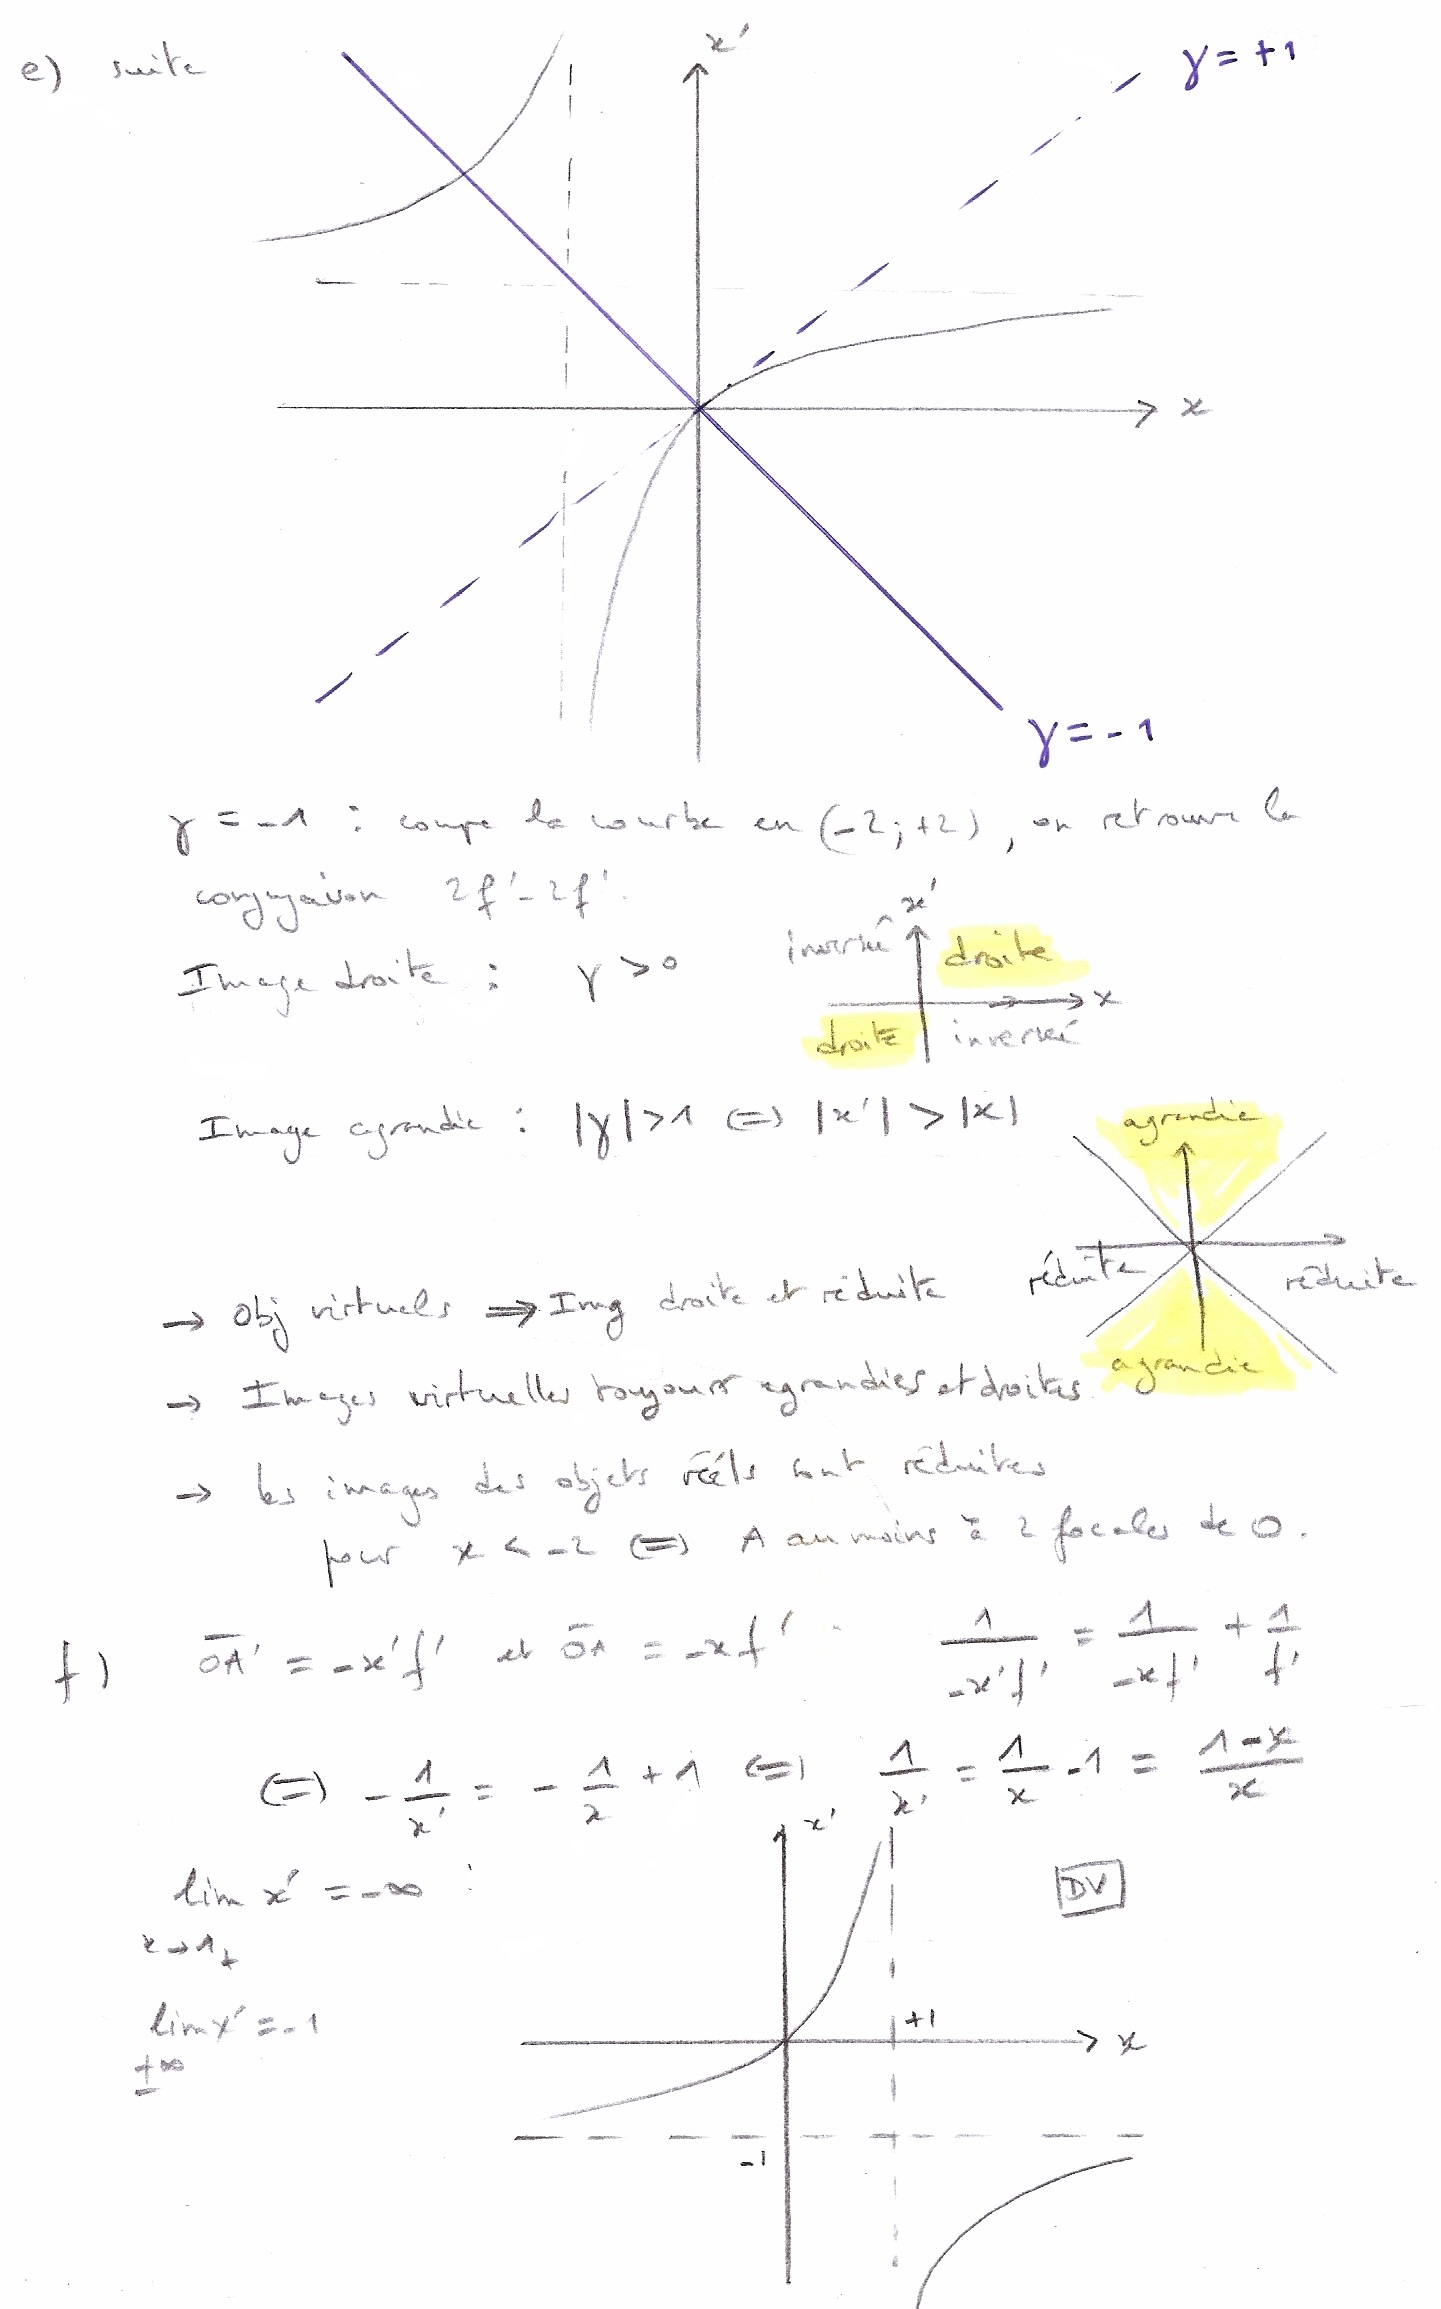 e) suite
x'
γ = +1
x
γ = -1
γ = -1 : coupe la courbe en (-2 ; +2), on retrouve la
conjugaison 2f' - 2f'.
x'
inversée droite
Image droite : γ > 0
x
droite inversée
Image agrandie : |γ| > 1 (=) |x'| > |x|
agrandie
réduite réduite
→ Obj virtuels ⇒ Img droite et réduite
agrandie
→ Images virtuelles toujours agrandies et droites.
→ les images des objets réels sont réduites
pour x < -2 (=) A au moins à 2 focales de O.
f) OA' = -x'f' et OA = -xf' 1/-x'f' = 1/-xf' + 1/f'
(=) -1/x' = -1/x + 1 (=) 1/x' = 1/x - 1 = 1-x/x
x'
lim x' = -∞ :
x→1+
DV
lim x' = -1
±∞
+1
x
-1